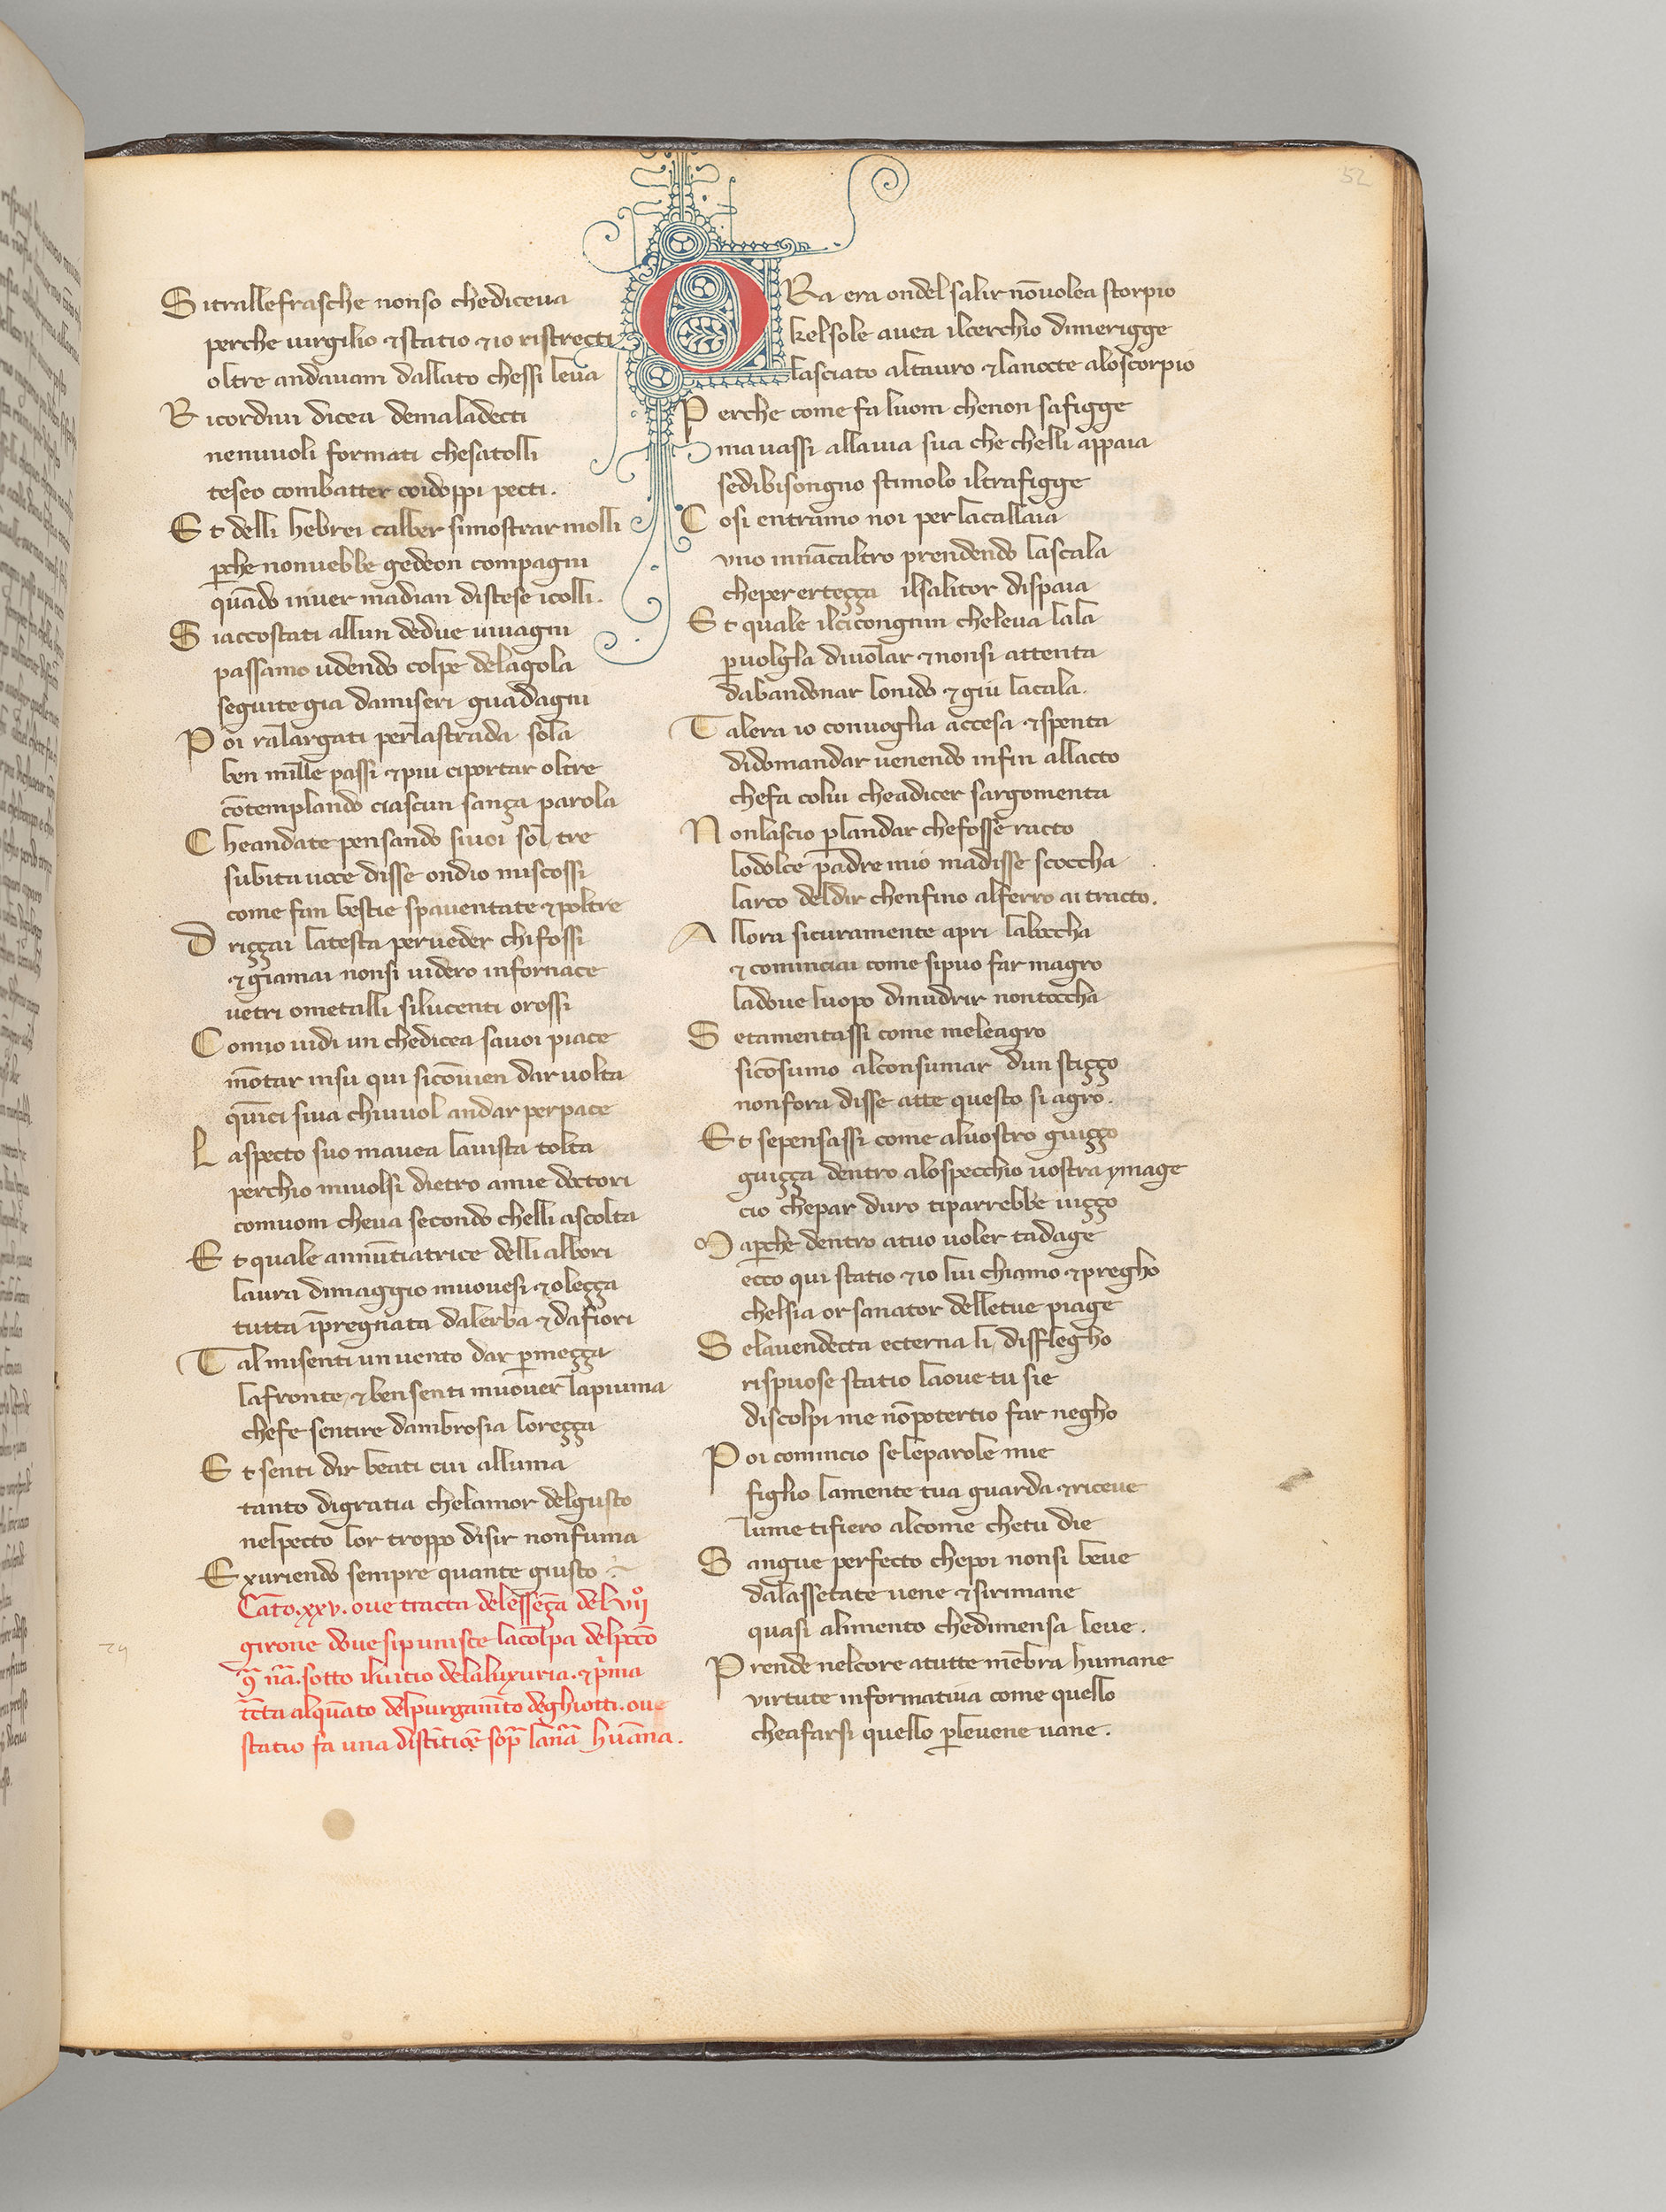 Sitrallefrasche nonso chediceua
perche uirgilio ⁊ statio ⁊ io ristrecti
oltre andauam dallato chessi leua
Ricordiui dicea demaladecti
nenuuoli formati chesatolli
teseo combatter coidoppi pecti.
Et delli hebrei calber simostrar molli
ꝑche nonuebbe gedeon compagni
quādo inuer madian discese icolli.
Siaccostati allun dedue uiuagni
passamo udendo colpe delagola
seguite gia damiseri guadagni
Poi rallargati perlastrada sola
ben mille passi ⁊ piu ciportar oltre
cōtemplando ciascun sança parola
Cheandate pensando siuoi sol tre
subita uoce disse ondio miscossi
come fan bestie spauentate ⁊ poltre
Driççai latesta perueder chifossi
⁊ giamai nonsi uidero infornace
uetri ometalli silucenti orossi
Comio uidi un chedicea sauoi piace
mōtar insu qui sicōuien dar uolta
quīci siua chiuuol andar per pace
Laspecto suo mauea lauista tolta
perchio miuolsi dietro amie doctori
comuom cheua secondo chelli ascolta
Et quale annūtiatrice delli albori
laura dimaggio muouesi ⁊ oleçça
tutta īpregnata dalerba ⁊ dafiori
Tal misenti un uento dar ꝑmeçça
lafronte ⁊ ben senti muouer lapiuma
chefe sentire dambrosia loreçça
Et senti dir beati cui alluma
tanto digratia chelamor delgusto
nelpecto lor troppo disir nonfuma
Exuriendo sempre quante giusto
Cāto.xxv. oue tracta delessēça del
girone doue sipunisce lacolpa delpcc̄o
nr̄a. sotto iluitio delaluxuria. ⁊ pīma
tc̄ta alquāto delpurgamīto deghiotti. oue
statio fa una distītiōe sopr̄a lanīa huāna.
ORa era ondel salir nōuolea storpio
kelsole auea ilcerchio dimerigge
lasciato altauro ⁊ lanocte aloscorpio
Perche come fa luom chenon safigge
ma uassi allauia sua che chelli appaia
sedibisongno stimolo iltrafigge
Cosi entramo noi per lacallaia
uno innāçaltro prendendo lascala
cheper erteçça ilsalitor dispaia
Et quale ilcicongnin cheleua lala
ꝑuolglia diuolar ⁊ nonsi attenta
dabandonar lonido ⁊ giu lacala.
Talera io conuoglia accesa ⁊ spenta
didomandar uenendo infin allacto
chefa colui cheadicer sargomenta
Nonlascio ꝑlandar chefosse racto
lodolce padre mio madisse scoccha
larco deldir chenfino alferro ai tracto.
Allora sicuramente apri labocca
⁊ cominciai come sipuo far magro
ladoue luopo dinudrir nontoccha
Setamentassi come meleagro
sicōsumo alconsumar dun stiççо
nonfora disse atte questo si agro.
Et sepensassi come aluostro guiçço
guiçça dentro alospecchio uostra ymage
cio chepar duro tiparrebbe uiçço
Maꝑche dentro atuo uoler tadage
ecco qui statio ⁊ io lui chiamo ⁊ pregho
chelsia or sanator delletue piage
Selauendecta ecterna li diffлegho
rispuose statio laoue tu sie
discolpi me nōpotertio far negho
Poi comincio seleparole mie
figlio lamente tua guarda ⁊ riceue
lume tifiero alcome chetu die
Sangue perfecto chepoi nonsi beue
dalassetate uene ⁊ sirimane
quasi alimento chedimensa leue.
Prende nelcore atutte mēbra humane
uirtute informatiua come quello
cheafarsi quello ꝑleuene uane.
52